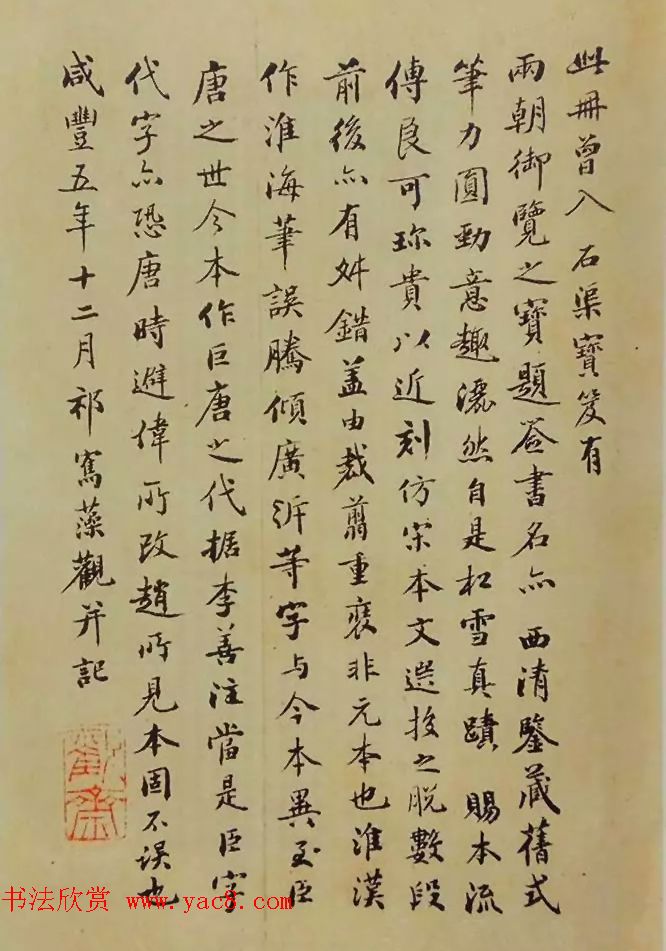 此冊曾入 石渠寶笈有
兩朝御覽之寶題簽書名亦 西清鑒藏舊式
筆力圓勁意趣灑然自是松雪真蹟 賜本流
傳良可珎貴以近刻仿宋本文選挍之脫數段
前後亦有舛錯盖由裁翦重裝非元本也淮漢
作淮海華誤騰傾廣泝等字与今本異至臣
唐之世今本作巨唐之代據李善注當是臣字
代字亦恐唐時避諱所改趙所見本固不誤也
咸豐五年十二月祁寯藻觀并記
书法欣赏 www.yac8.com